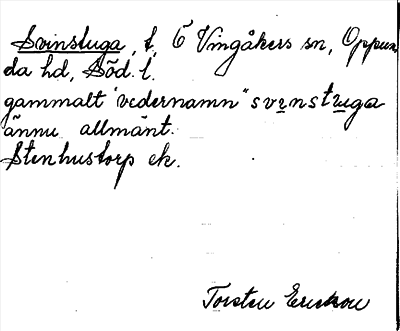 Svinstuga, t, Ö Vingåkers sn, Oppun,
da hd, Söd. l.
gammalt "vedernamn" svinstuga
ännu allmänt.
Stenhustorp ek.
Torsten Ericsson